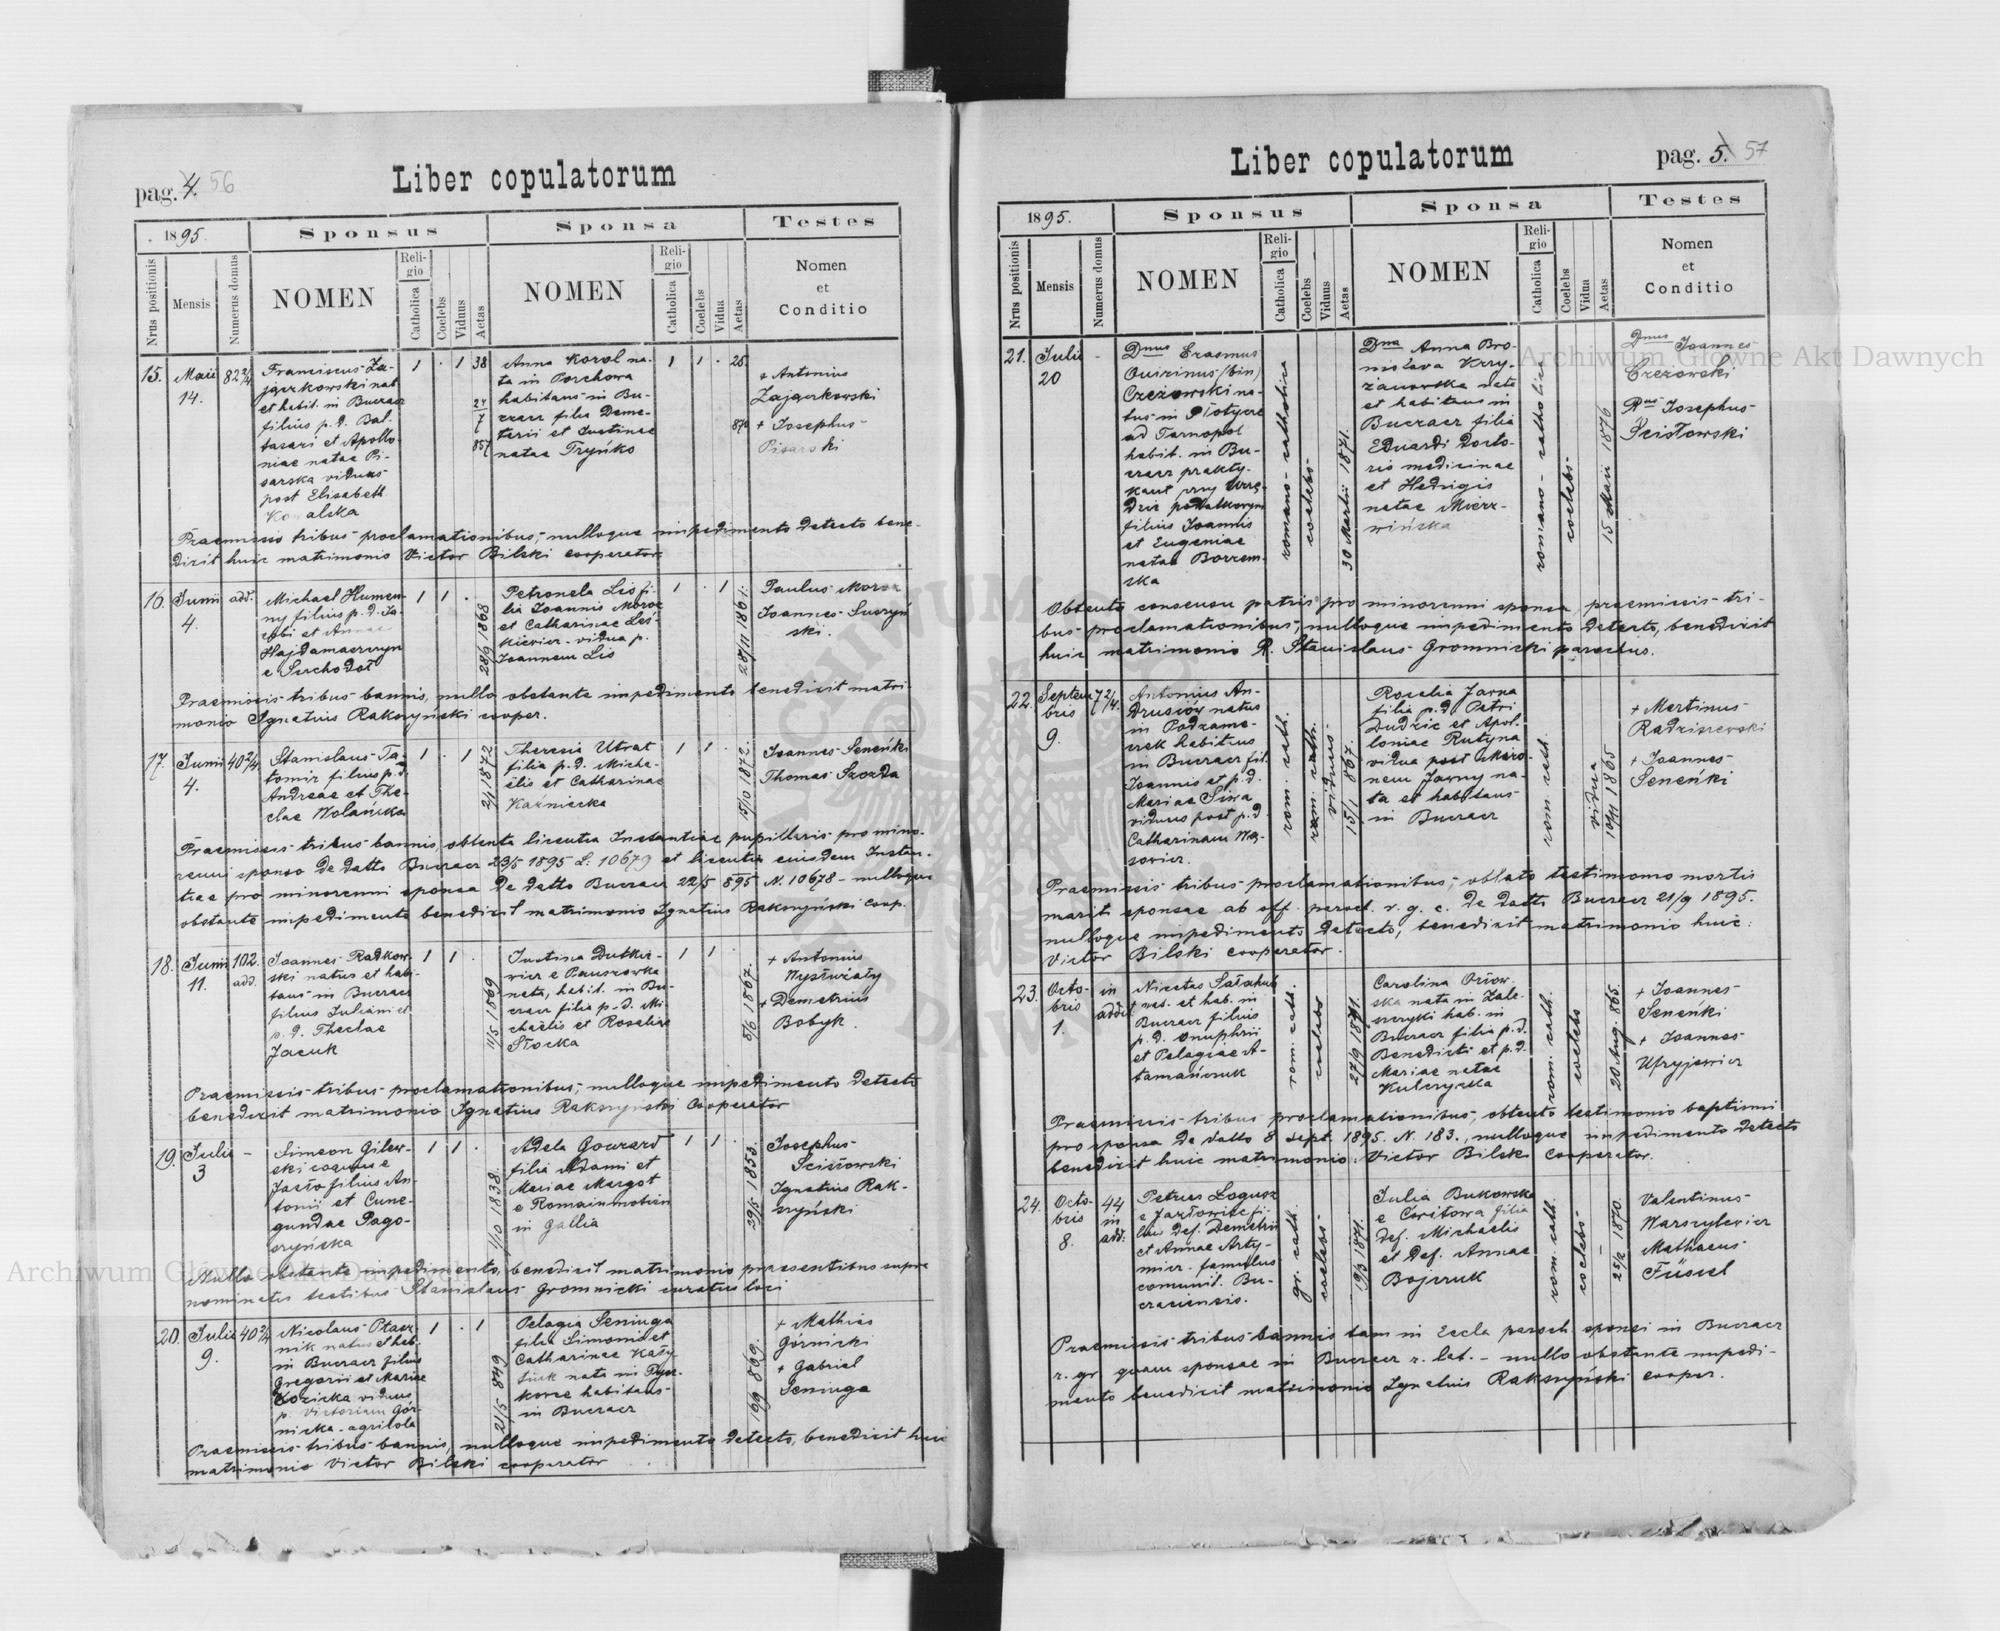 pag. 4. 56
Liber copulatorum
1895.
Sponsus
Sponsa
Testes
Nrus positionis
Mensis
Numerus domus
NOMEN
Religio
Catholica
Coelebs
Viduus
Aetas
NOMEN
Religio
Catholica
Coelebs
Vidua
Aetas
Nomen
et
Conditio
15. Maii
14.
82 2/4
Franciscus Za-
jączkowski nat
et habit. in Buczacz
filius p. d. Bal-
tasari et Apollo-
niae natae Pi-
sarska viduus
post Elisabeth
Kowalska
1 . 1 38
24
7
857
Anna Korol na-
ta in Porchowa
habitans in Bu-
czacz filia Deme-
terii et Justinae
natae Tryńko
1 1 . 25
870
+ Antonius
Zajączkowski
+ Josephus
Pisarski
Praemissis tribus proclamationibus, nulloque impedimento detecto bene-
dixit huic matrimonio Victor Bilski cooperator
16. Junii
4.
add.
Michael Humen-
ny filius p. d. Ja-
cobi et Annae
Hajdamaczczyn
e Suchodoł
1 1 .
28/9 1868
Petronela Lis fi-
lia Joannis Moroz
et Catharinae Les-
kiewicz - vidua p.
Joannem Lis
1 . 1
28/11 1861.
Paulus Moroz
Joannes Suszyń
ski.
Praemissis tribus bannis, nullo obstante impedimento benedixit matri-
monio Ignatius Rakszyński cooper.
17. Junii
4.
40 2/4
Stanislaus Ta-
tomir filius p. d.
Andreae et The-
clae Wolańska
1 . 1
2/1 1872
Theresia Utrat
filia p. d. Micha-
ëlis et Catharinae
Kaźniecka
1 1 .
15/10 1872.
Joannes Seneńki
Thomas Szozda
Praemissis tribus bannis, obtenta licentia Instantiae pupillaris pro mino-
renni sponso de datto Buczacz 23/5 1895 L. 10679 et licentia eiusdem Instan-
tiae pro minorenni sponsa de datto Buczacz 22/5 895 N. 10678 - nulloque
obstante impedimento benedixit matrimonio Ignatius Rakszyński coop.
18. Junii
11.
102.
add.
Joannes Radkow-
ski natus et habi-
tans in Buczacz
filius Juliani et
p. d. Theclae
Jacuk
1 1 .
11/5 1869
Justina Dutkie-
wicz e Pauszówka
nata, habit. in Bu-
czacz filia p. d. Mi-
chaëlis et Rosaliae
Słocka
1 1 .
8/6 1867.
+ Antonius
Wystwiały
+ Demetrius
Bobyk.
Praemissis tribus proclamationibus, nulloque impedimento detecto
benedixit matrimonio Ignatius Rakszyński Cooperator
19. Julii
3
-
Simeon Gilew-
ski coquus e
Jasło filius An-
tonii et Cune-
gundae Pago-
szyńska
1 1 .
1/10 1838.
Adela Gourard
filia Adami et
Mariae Margot
e Romainmotien
in Gallia
1 1 .
29/5 1853.
Josephus
Scisłowski
Ignatius Rak-
szyński
Nullo obstante impedimento, benedixit matrimonio praesentibus supra
nominatis testibus Stanislaus Gromnicki curatus loci
20. Julii
9.
40 2/4
Nicolaus Ptasz-
nik natus & hab.
in Buczacz filius
Gregorii et Mariae
Kozicka viduus
p. Victoriam Gór-
nicka - agricola
1 . 1
21/5 849
Pelagia Seninga
filia Simonis et
Catharinae Kały-
niuk nata in Pysz-
kowce habitans
in Buczacz
16/9 869.
+ Mathias
Górnicki
+ Gabriel
Seninga
Praemissis tribus bannis, nulloque impedimento detecto, benedixit huic
matrimonio Victor Bilski cooperator
pag. 5. 57
Liber copulatorum
1895.
Sponsus
Sponsa
Testes
Nrus positionis
Mensis
Numerus domus
NOMEN
Religio
Catholica
Coelebs
Viduus
Aetas
NOMEN
Religio
Catholica
Coelebs
Vidua
Aetas
Nomen
et
Conditio
21. Julii
20
-
Dnus Erasmus
Quirinus (bin)
Czeżowski na-
tus in Płotycze
ad Tarnopol
habit. in Bu-
czacz prakty-
kant przy Urzę-
dzie podatkowym
filius Joannis
et Eugeniae
natae Borzem-
ska
romano-catholica
coelebs
30 Martii 1871.
Dna Anna Bro-
nislava Krzy-
żanowska nata
et habitans in
Buczacz filia
Eduardi Docto-
ris medicinae
et Hedvigis
natae Mierz-
wińska
romano-catholica
coelebs
15 Maii 1876
Dnus Joannes
Czeżowski
Rnus Josephus
Ścisłowski
Obtento consensu patris pro minorenni sponsa, praemissis tri-
bus proclamationibus, nulloque impedimento detecto, benedixit
huic matrimonio R. Stanislaus Gromnicki parochus.
22. Septem
bris
9.
72/4.
Antonius An-
drusiów natus
in Podzame-
czek habitans
in Buczacz fil.
Joannis et p. d.
Mariae Siwa
viduus post p. d.
Catharinam Wą-
sowicz.
rom. cath.
rom. cath.
viduus
15/1 867.
Rosalia Jarna
filia p. d. Petri
Dudzic et Apol-
loniae Rutyna
vidua post Miro-
nem Jarny na-
ta et habitans
in Buczacz
rom. cath.
vidua
19/11 1865
+ Martinus
Radziszewski
+ Joannes
Seneńki
Praemissis tribus proclamationibus, oblato testimonio mortis
mariti sponsae ab off. paroch. r. g. c. de datto Buczacz 21/9 1895.
nulloque impedimento detecto, benedixit matrimonio huic
Victor Bilski cooperator.
23. Octo-
bris
1.
in
addit
Nicetas Sałahub
nat. et hab. in
Buczacz filius
p. d. Onuphrii
et Pelagiae A-
tamańczuk
rom. cath.
coelebs
27/9 1871.
Carolina Orłow-
ska nata in Zale-
szczyki hab. in
Buczacz filia p. d.
Benedicti et p. d.
Mariae natae
Kulczycka
rom. cath.
coelebs
20 Aug. 865.
+ Joannes
Seneńki
+ Joannes
Ufryjewicz
Praemissis tribus proclamationibus, obtento testimonio baptismi
pro sponsa de datto 8 sept. 1895. N. 183., nulloque impedimento detecto
benedixit huic matrimonio Victor Bilski Cooperator.
24. Octo-
bris
8.
44
in
add.
Petrus Logusz
e Jazłowiec fi-
lius def. Demetrii
et Annae Arty-
miez. famulus
comunit. Bu-
czaciensis.
gr. cath.
coelebs
19/3 1871.
Julia Bukowska
e Cwitowa filia
def. Michaelis
et def. Annae
Bojczuk
rom. cath.
coelebs
25/2 1870.
Valentinus
Waszylewicz
Mathaeus
Füssel
Praemissis tribus bannis tam in Eccla paroch. sponsi in Buczacz
r. gr. quam sponsae in Buczacz r. lat. - nullo obstante impedi-
mento benedixit matrimonio Ignatius Rakszyński cooper.
Archiwum Główne Akt Dawnych
Archiwum Główne Akt Dawnych